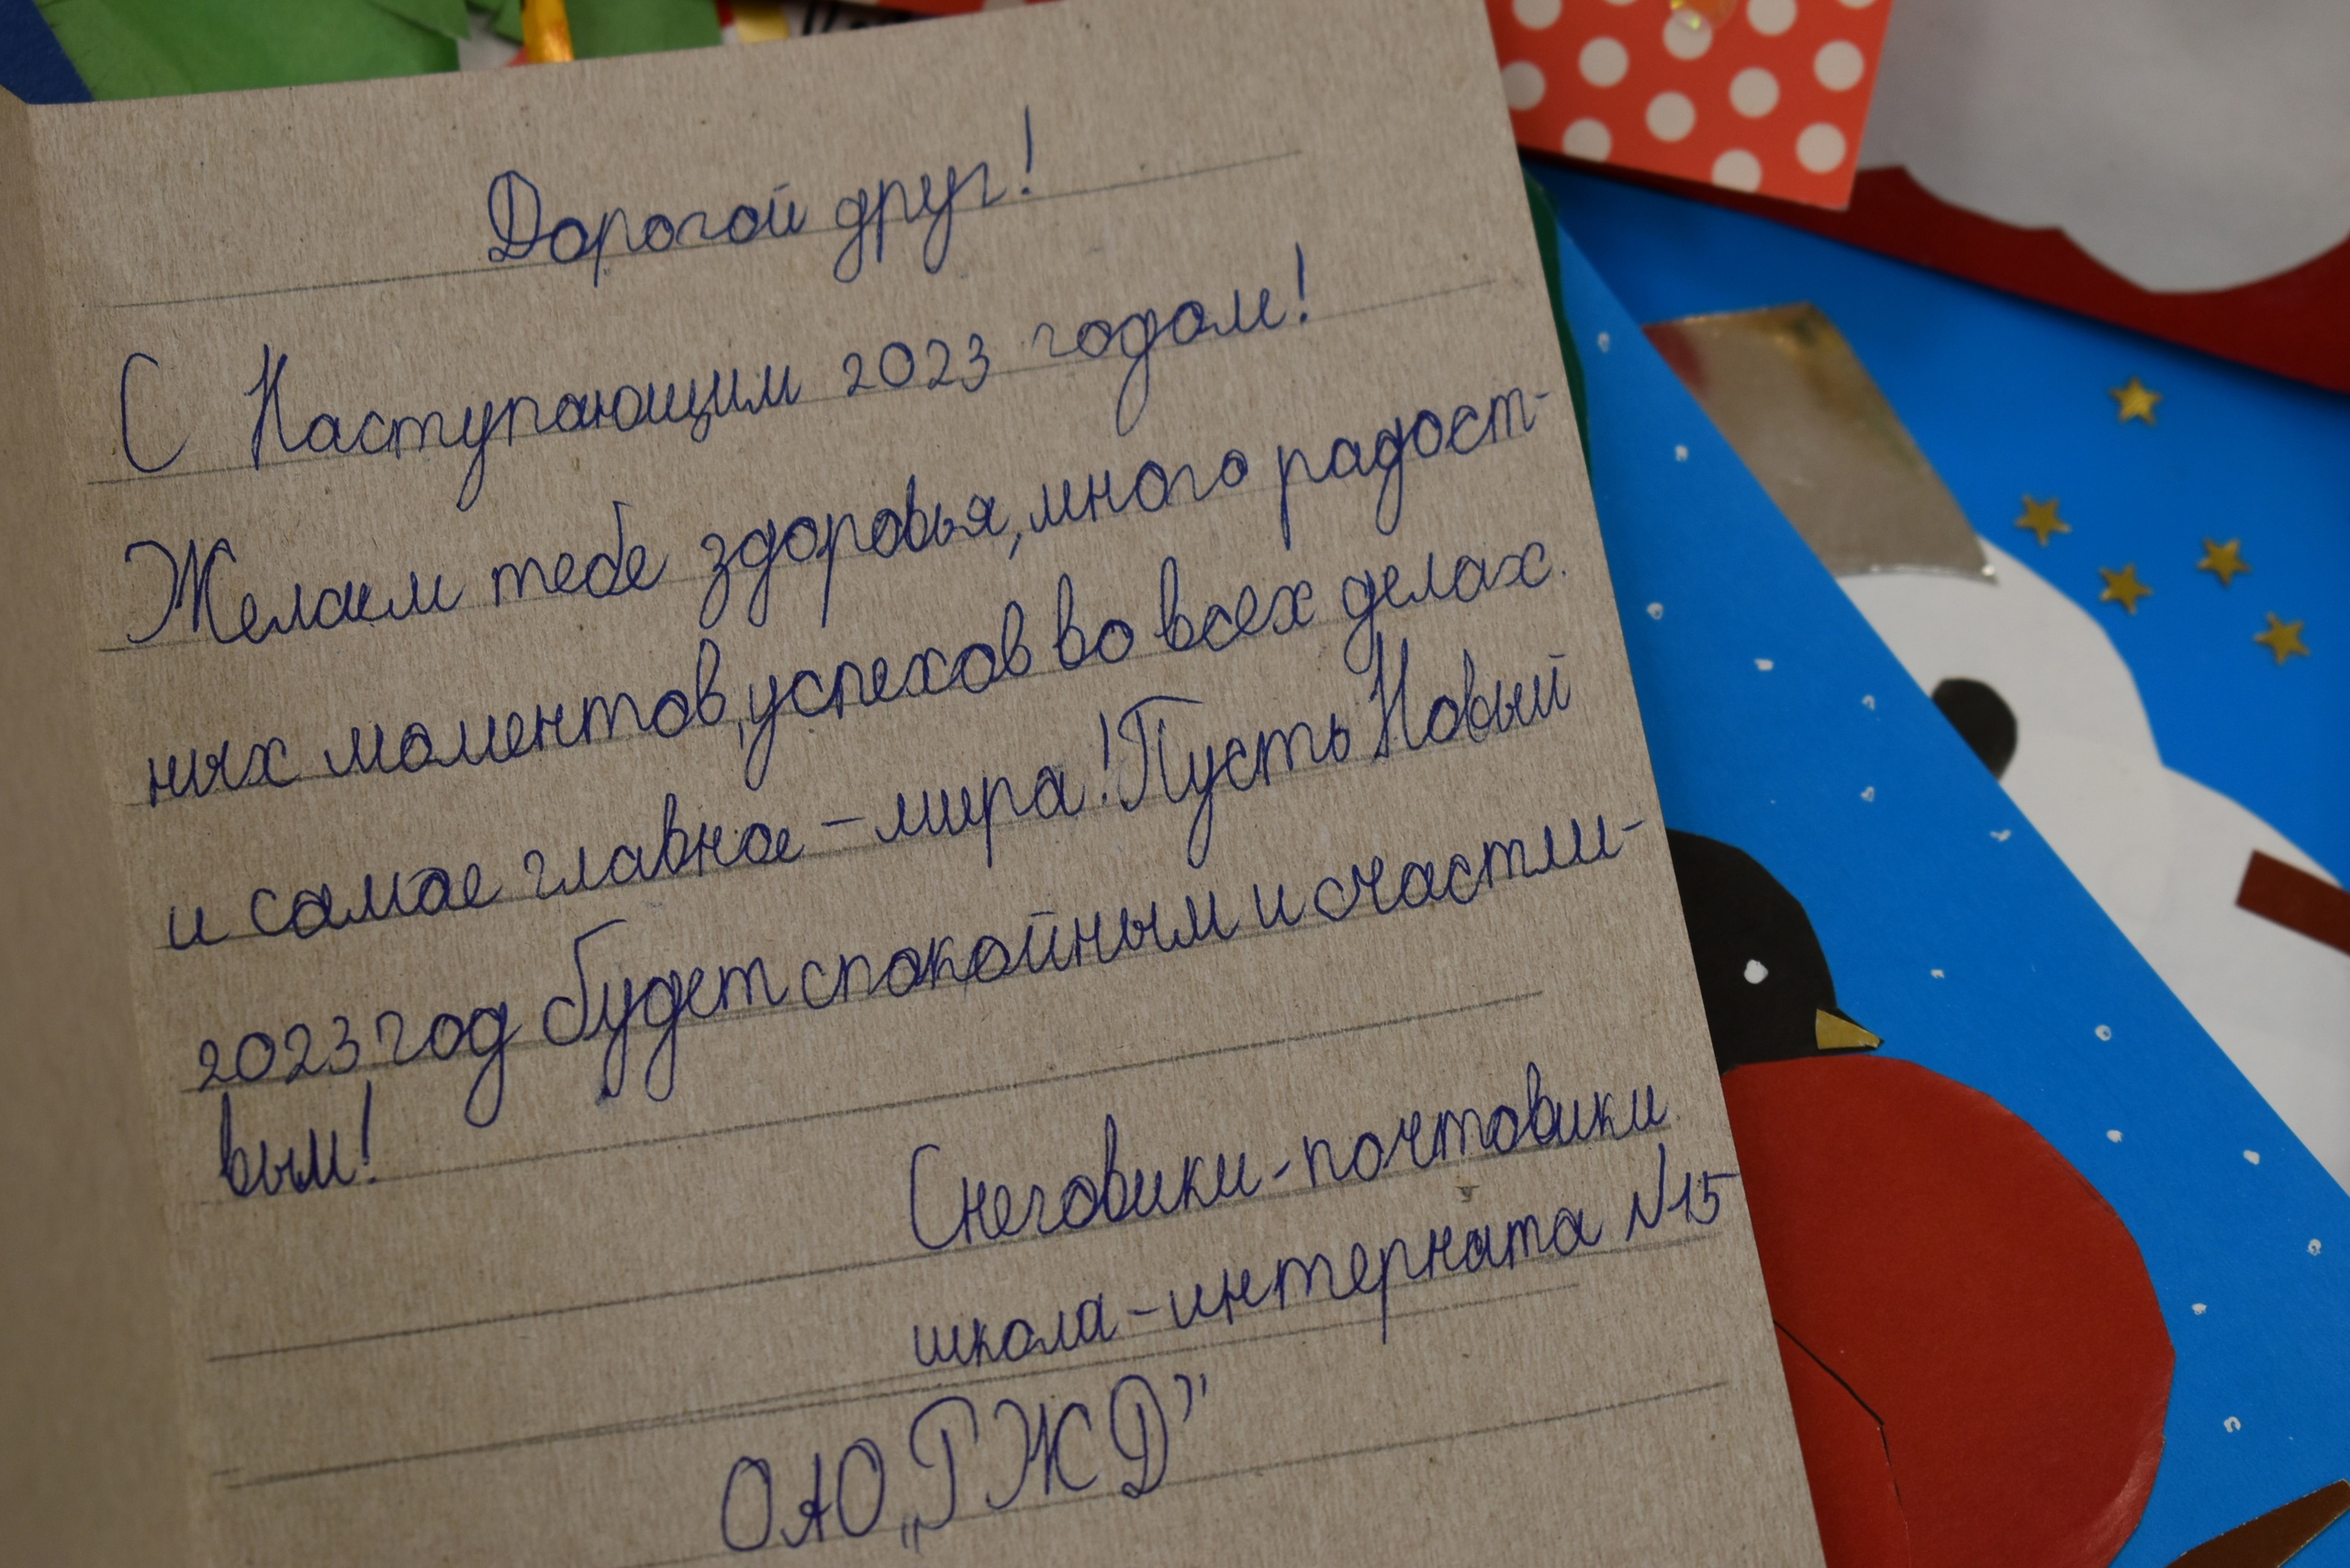 Дорогой друг!
С Наступающим 2023 годом!
Желаем тебе здоровья, много радост-
ных моментов, успехов во всех делах.
и самое главное - мира! Пусть Новый
2023 год будет спокойным и счастли-
вым!
Снеговики-почтовики
школа-интерната №15
ОАО „РЖД"